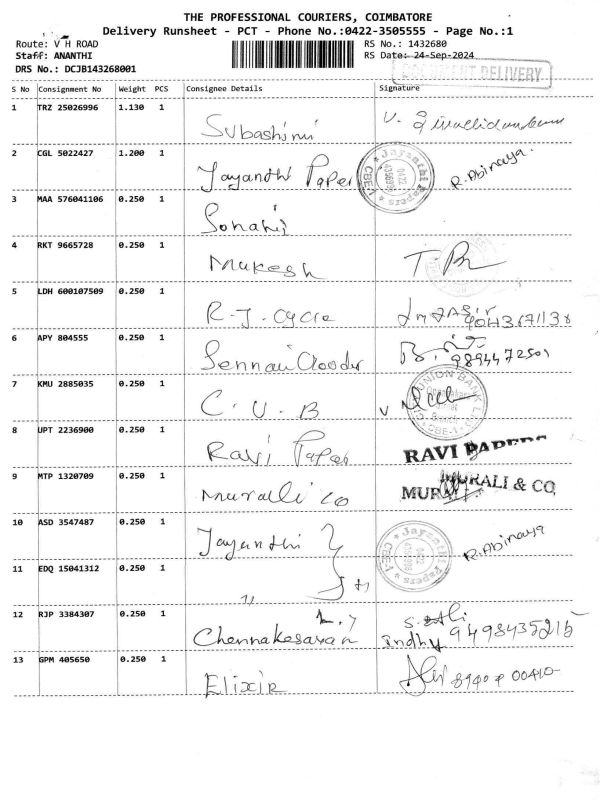 THE PROFESSIONAL COURIERS, COIMBATORE
Delivery Runsheet - PCT - Phone No.:0422-3505555 - Page No.:1
Route: V H ROAD RS No.: 1432680
Staff: ANANTHI RS Date: 24-Sep-2024
DRS No.: DCJB143268001 DELIVERY
S No Consignment No Weight PCS Consignee Details Signature
1 TRZ 25026996 1.130 1 Subashini V.
2 CGL 5022427 1.200 1 Jayanthi Paper Jayanthi Papers 0422 CBE-1 R. Abinaya.
3 MAA 576041106 0.250 1
4 RKT 9665728 0.250 1 Mukesh
5 LDH 600107509 0.250 1 R. J. Cycle
6 APY 804555 0.250 1
7 KMU 2885035 0.250 1 C. U. B UNION BANK CBE-1
8 UPT 2236900 0.250 1 Ravi Paper RAVI PAPERS
9 MTP 1320709 0.250 1 Muralli co MURALI & CO
10 ASD 3547487 0.250 1 Jayanthi Jayanthi Papers 0422 CBE-1 R. Abinaya
11 EDQ 15041312 0.250 1 "
12 RJP 3384307 0.250 1 Chennakesavan Indhu 9498435215
13 GPM 405650 0.250 1 Elixir